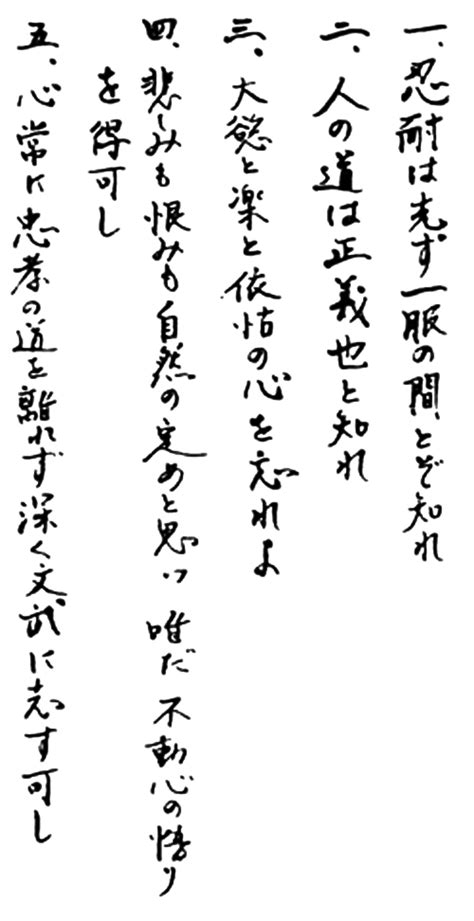 一、忍耐は先ず一服の間とぞ知れ
二、人の道は正義也と知れ
三、大慾と楽と依怙の心を忘れよ
四、悲しみも恨みも自然の定めと思い 唯だ 不動心の悟り
を得可し
五、心常に忠孝の道を離れず深く文武に志す可し